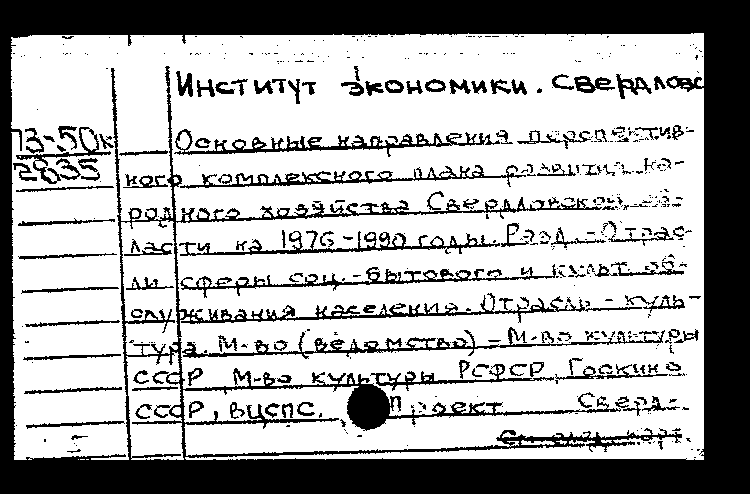 Институт экономики. Свердловс
73-50к
2835
Основные направления перспектив-
ного комплексного плана развития на-
родного хозяйства Свердловской об-
ласти на 1976-1990 годы. Разд. - Отрас-
ли сферы соц.-бытового и культ. об-
служивания населения. Отрасль - куль-
тура. М-во (ведомство) - М-во культуры
СССР, М-во культуры РСФСР, Госкино
СССР, ВЦСПС. Проект. Сверд-
См. след. карт.